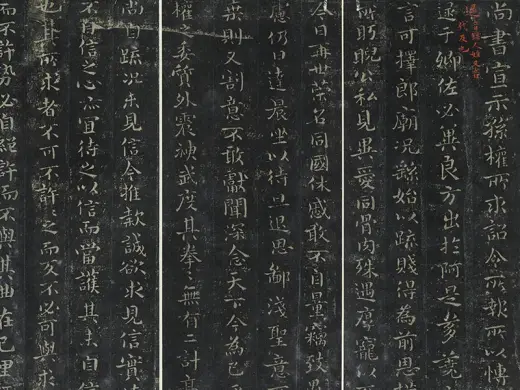 尚書宣示孫權所求詔令所報所以博
逮于卿佐必冀良方出於阿是芻蕘
言可擇郎廟況繇始以疏賤得為前恩
所盻睨公私見異愛同骨肉殊遇厚寵以
今日再世榮名同國休慼敢不自量竊致愚
慮仍日達晨坐以待旦退思鄙淺聖意
棄則又割意不敢獻聞深念天下今為已
權之委質外震神武度其拳拳無有二計高
尚自疏況未見信今推款誠欲求見信實
不自信之心亦宜待之以信而當護其未自信
也其所求者不可不許許之而反不必可與求
而不許勢必自絕許而不與其曲在己里